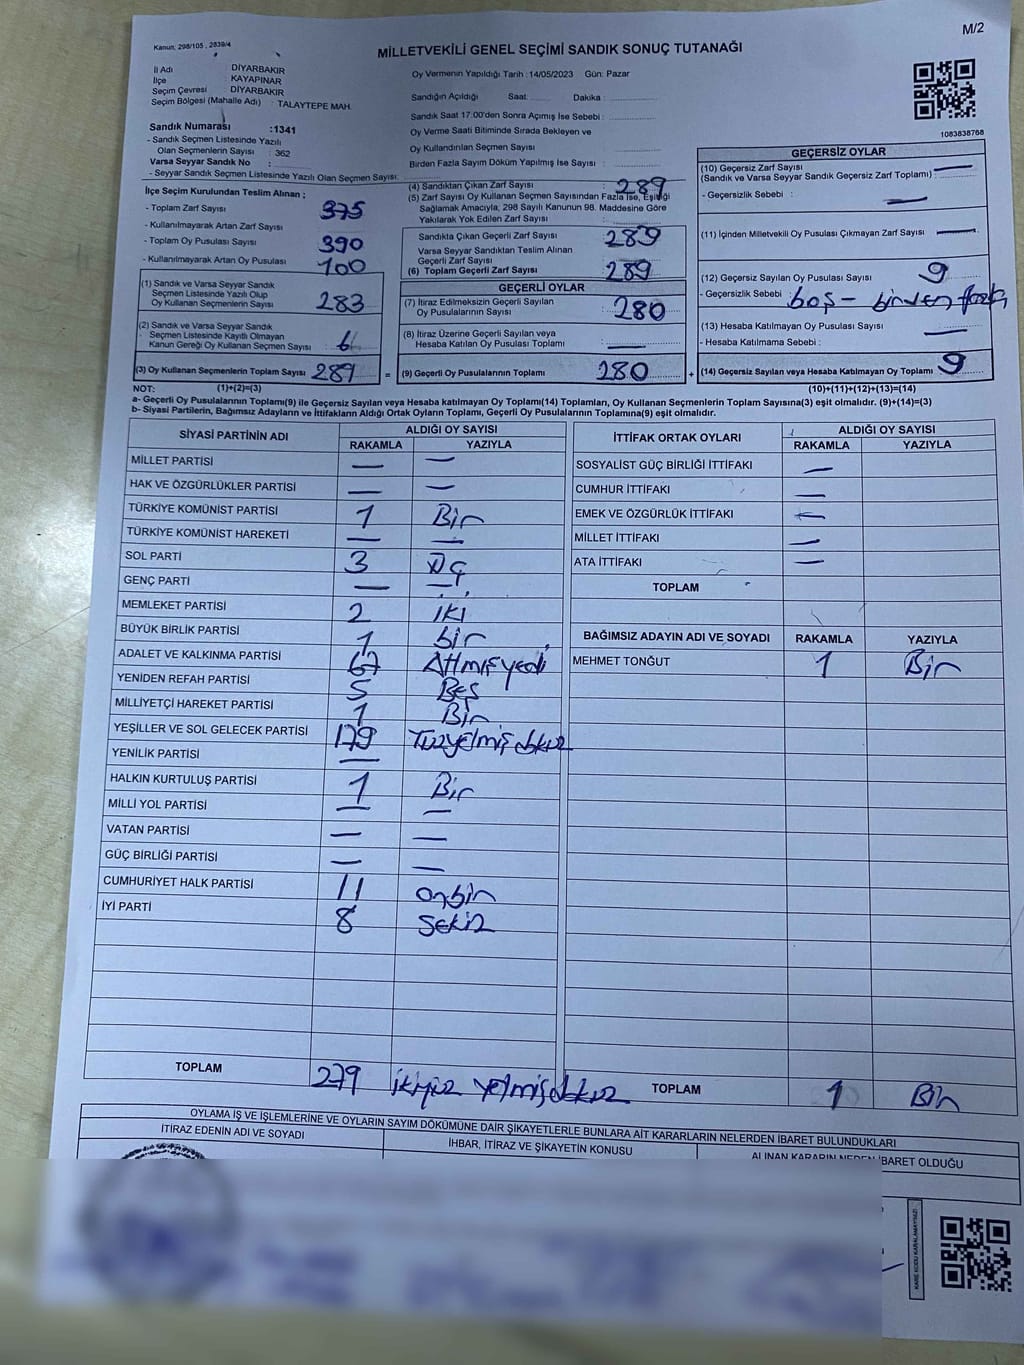 Kanun, 298/105 , 2839/4
M/2
MİLLETVEKİLİ GENEL SEÇİMİ SANDIK SONUÇ TUTANAĞI
İl Adı : DİYARBAKIR
İlçe KAYAPINAR
Seçim Çevresi DİYARBAKIR
Seçim Bölgesi (Mahalle Adı) : TALAYTEPE MAH.
Sandık Numarası :1341
- Sandık Seçmen Listesinde Yazılı
Olan Seçmenlerin Sayısı : 362
Varsa Seyyar Sandık No :
- Seyyar Sandık Seçmen Listesinde Yazılı Olan Seçmen Sayısı:
Oy Vermenin Yapıldığı Tarih :14/05/2023 Gün: Pazar
Sandığın Açıldığı Saat: Dakika :
Sandık Saat 17:00'den Sonra Açımış İse Sebebi :
Oy Verme Saati Bitiminde Sırada Bekleyen ve
Oy Kullandırılan Seçmen Sayısı
Birden Fazla Sayım Döküm Yapılmış İse Sayısı :
1083838768
İlçe Seçim Kurulundan Teslim Alınan ;
- Toplam Zarf Sayısı 375
- Kullanılmayarak Artan Zarf Sayısı
- Toplam Oy Pusulası Sayısı 390
- Kullanılmayarak Artan Oy Pusulası 100
(1) Sandık ve Varsa Seyyar Sandık
Seçmen Listesinde Yazılı Olup
Oy Kullanan Seçmenlerin Sayısı 283
(2) Sandık ve Varsa Seyyar Sandık
Seçmen Listesinde Kayıtlı Olmayan
Kanun Gereği Oy Kullanan Seçmen Sayısı 6
(3) Oy Kullanan Seçmenlerin Toplam Sayısı 289 =
(4) Sandıktan Çıkan Zarf Sayısı : 289
(5) Zarf Sayısı Oy Kullanan Seçmen Sayısından Fazla İse, Eşitliği
Sağlamak Amacıyla, 298 Sayılı Kanunun 98. Maddesine Göre
Yakılarak Yok Edilen Zarf Sayısı :
Sandıkta Çıkan Geçerli Zarf Sayısı 289
Varsa Seyyar Sandıktan Teslim Alınan
Geçerli Zarf Sayısı
(6) Toplam Geçerli Zarf Sayısı 289
GEÇERLİ OYLAR
(7) İtiraz Edilmeksizin Geçerli Sayılan
Oy Pusulalarının Sayısı : 280
(8) İtiraz Üzerine Geçerli Sayılan veya
Hesaba Katılan Oy Pusulası Toplamı : —
(9) Geçerli Oy Pusulalarının Toplamı 280 +
GEÇERSİZ OYLAR
(10) Geçersiz Zarf Sayısı
(Sandık ve Varsa Seyyar Sandık Geçersiz Zarf Toplamı) : —
- Geçersizlik Sebebi : —
(11) İçinden Milletvekili Oy Pusulası Çıkmayan Zarf Sayısı —
(12) Geçersiz Sayılan Oy Pusulası Sayısı 9
- Geçersizlik Sebebi boş - birden fazla
(13) Hesaba Katılmayan Oy Pusulası Sayısı : —
- Hesaba Katılmama Sebebi :
(14) Geçersiz Sayılan veya Hesaba Katılmayan Oy Toplamı 9
NOT: (1)+(2)=(3) (10)+(11)+(12)+(13)=(14)
a- Geçerli Oy Pusulalarının Toplamı(9) ile Geçersiz Sayılan veya Hesaba katılmayan Oy Toplamı(14) Toplamları, Oy Kullanan Seçmenlerin Toplam Sayısına(3) eşit olmalıdır. (9)+(14)=(3)
b- Siyasi Partilerin, Bağımsız Adayların ve İttifakların Aldığı Ortak Oyların Toplamı, Geçerli Oy Pusulalarının Toplamına(9) eşit olmalıdır.
SİYASİ PARTİNİN ADI ALDIĞI OY SAYISI
RAKAMLA YAZIYLA
MİLLET PARTİSİ — —
HAK VE ÖZGÜRLÜKLER PARTİSİ — —
TÜRKİYE KOMÜNİST PARTİSİ 1 Bir
TÜRKİYE KOMÜNİST HAREKETİ — —
SOL PARTİ 3 üç
GENÇ PARTİ — —
MEMLEKET PARTİSİ 2 iki
BÜYÜK BİRLİK PARTİSİ 1 bir
ADALET VE KALKINMA PARTİSİ 67 Altmışyedi
YENİDEN REFAH PARTİSİ 5 Beş
MİLLİYETÇİ HAREKET PARTİSİ 1 Bir
YEŞİLLER VE SOL GELECEK PARTİSİ 179 Yüzyetmişdokuz
YENİLİK PARTİSİ —
HALKIN KURTULUŞ PARTİSİ 1 Bir
MİLLİ YOL PARTİSİ — —
VATAN PARTİSİ — —
GÜÇ BİRLİĞİ PARTİSİ — —
CUMHURİYET HALK PARTİSİ 11 onbir
İYİ PARTİ 8 sekiz
TOPLAM 279 ikiyüz yetmişdokuz
İTTİFAK ORTAK OYLARI ALDIĞI OY SAYISI
RAKAMLA YAZIYLA
SOSYALİST GÜÇ BİRLİĞİ İTTİFAKI —
CUMHUR İTTİFAKI —
EMEK VE ÖZGÜRLÜK İTTİFAKI —
MİLLET İTTİFAKI —
ATA İTTİFAKI —
TOPLAM
BAĞIMSIZ ADAYIN ADI VE SOYADI RAKAMLA YAZIYLA
MEHMET TONĞUT 1 Bir
TOPLAM 1 Bir
OYLAMA İŞ VE İŞLEMLERİNE VE OYLARIN SAYIM DÖKÜMÜNE DAİR ŞİKAYETLERLE BUNLARA AİT KARARLARIN NELERDEN İBARET BULUNDUKLARI
İTİRAZ EDENİN ADI VE SOYADI İHBAR, İTİRAZ VE ŞİKAYETİN KONUSU ALINAN KARARIN NEDEN İBARET OLDUĞU
KARE KODU KARALAMAYINIZ!